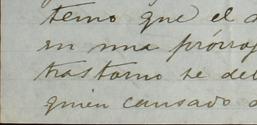 temo que el
en una prórro
trastorno se de
quien causado